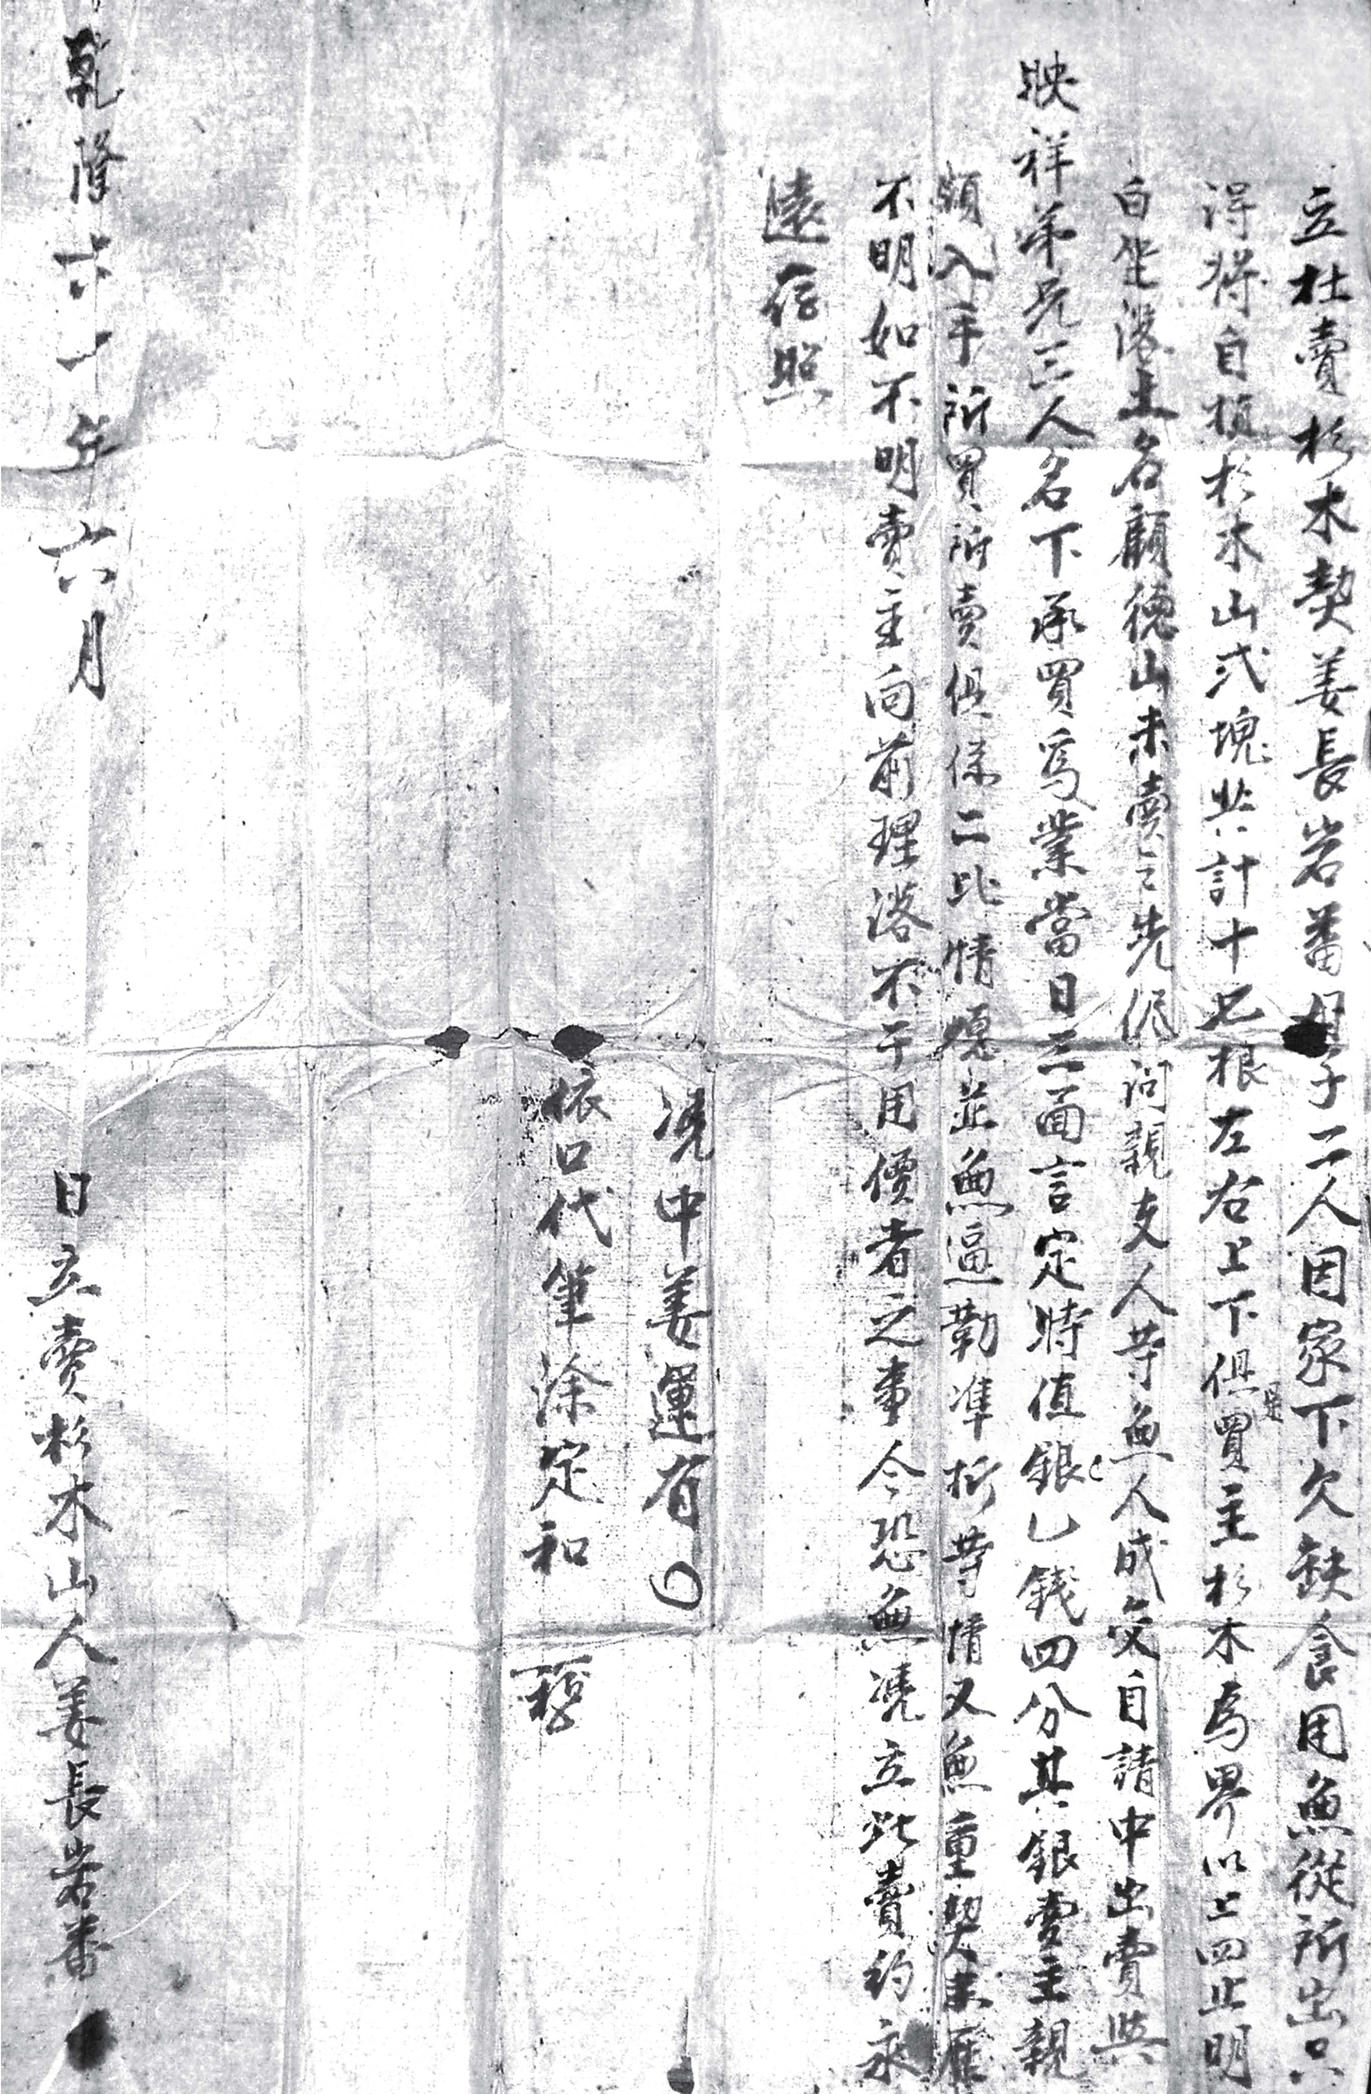 立杜賣杉木契姜長岩蕃母子二人因家下欠缺食用無從所出只
得將自損杉木山弍塊共計十七根左右上下俱是買主杉木為界以上四止明
白坐落土名顧德山未賣之先侭問親支人等無人成交自請中出賣與
映祥弟兄三人名下承買爲業當日三面言定時值銀乚錢四分其銀賣主親
領入手所買所賣俱係二比情愿並無逼勒準折等情又無重契未
不明如不明賣主向前理落不干用價者之事今恐無憑立此賣約永
遠存照
憑中姜運有
依口代筆涂定和
乾隆六十年六月 日立賣杉木山人姜長岩蕃